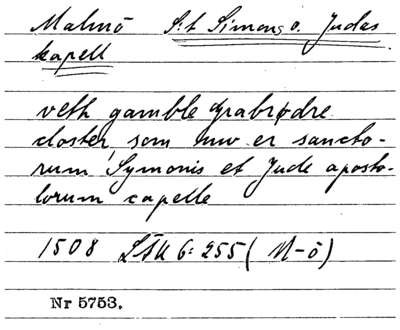 Malmö S:t Simons o. Judas
kapell
veth gamble Grabrødre
closter, som nw er sancto-
rum Symonis et Jude aposto-
lorum capelle
1508 LÅU 6:255 (M-ö)
Nr 5753.